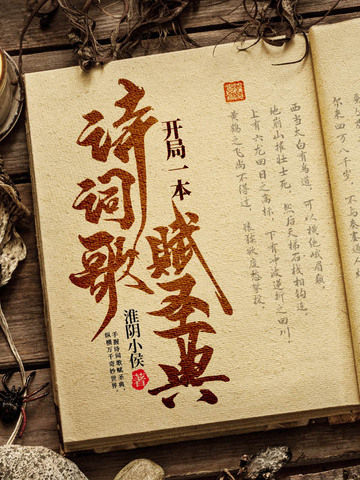 开局一本
诗词歌
赋圣典
淮阴小侯 著
手握诗词歌赋圣典，
纵横万千奇妙世界。
尔来四万八千岁，不与秦塞通人
西当太白有鸟道，可以横绝峨眉巅，
地崩山摧壮士死，然后天梯石栈相钩连，
上有六龙回日之高标，下有冲波逆折之回川，
黄鹤之飞尚不得过，猿猱欲度愁攀援，